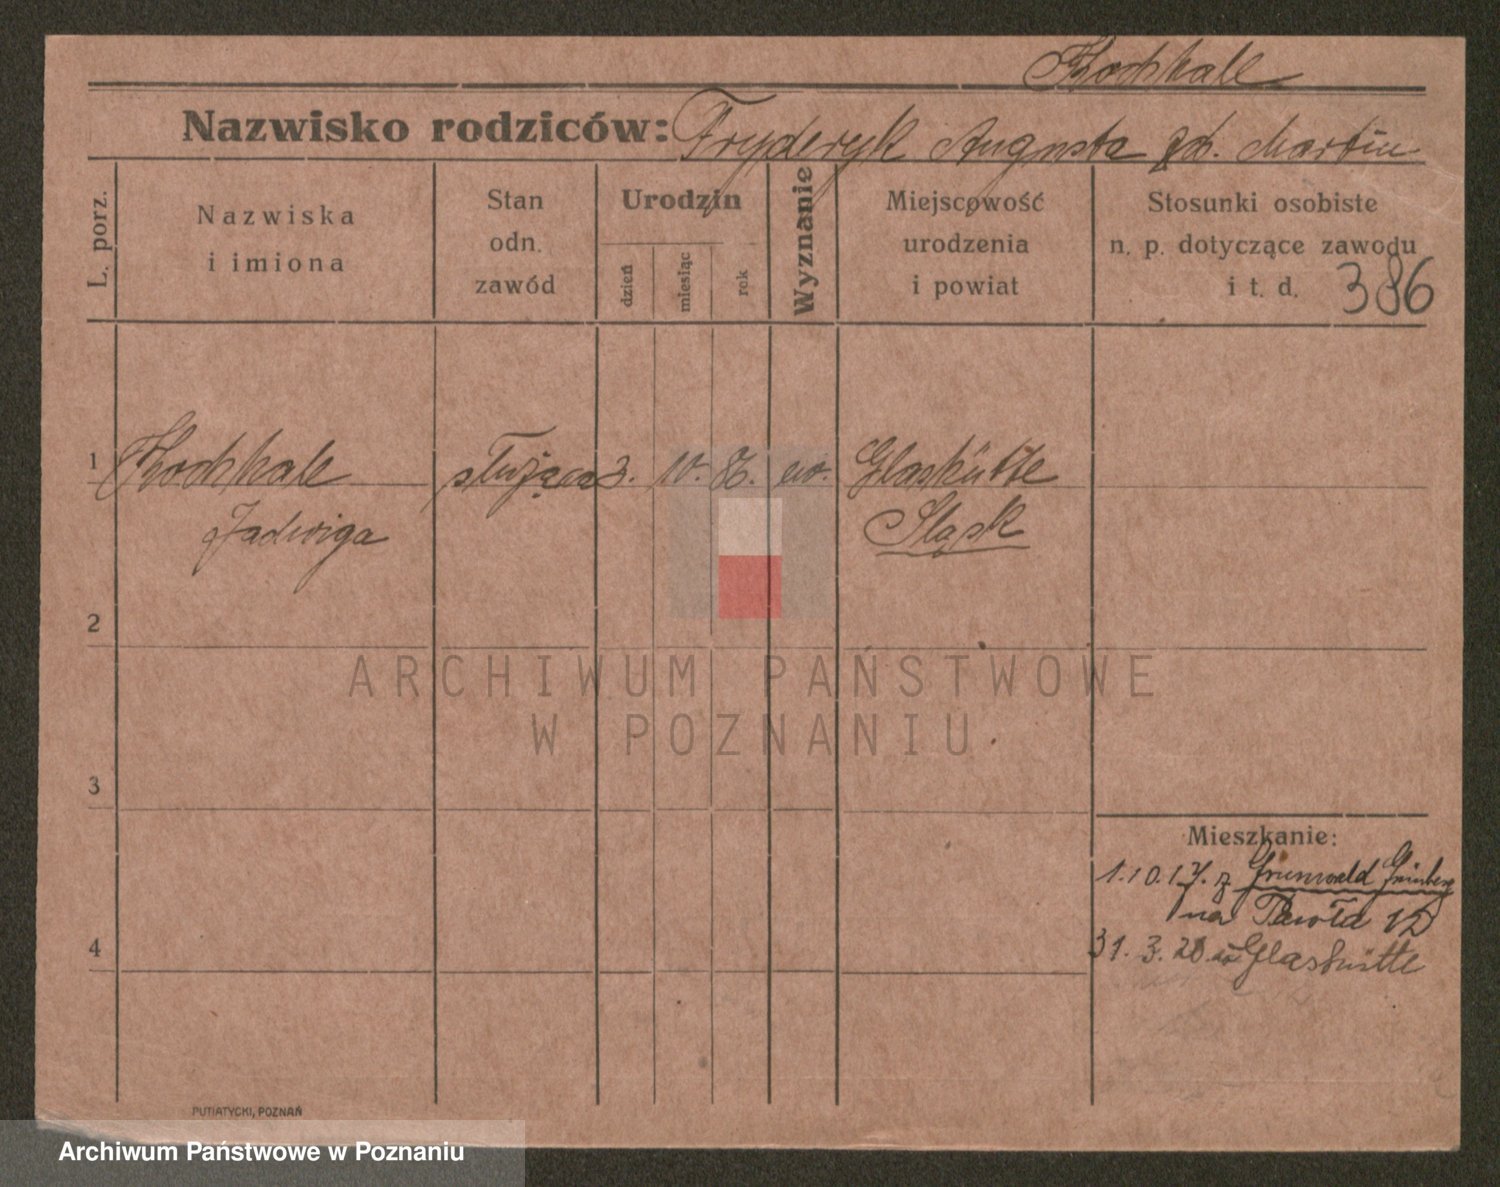 Kochkale
Nazwisko rodziców: Fryderyk Augusta zd. Martin
L. porz.
Nazwiska
i imiona
Stan
odn.
zawód
Urodzin
dzień
miesiąc
rok
Wyznanie
Miejscowość
urodzenia
i powiat
Stosunki osobiste
n. p. dotyczące zawodu
i t. d. 386
1 Kochkale służąca 3. 10. 86. ew. Glashütte
Jadwiga Śląsk
2
ARCHIWUM PAŃSTWOWE
W POZNANIU
3
Mieszkanie:
1.10.17. z Grunwald Grünberg
na Pawła 12
4
31. 3. 20. Glashütte
PUTIATYCKI, POZNAŃ
Archiwum Państwowe w Poznaniu